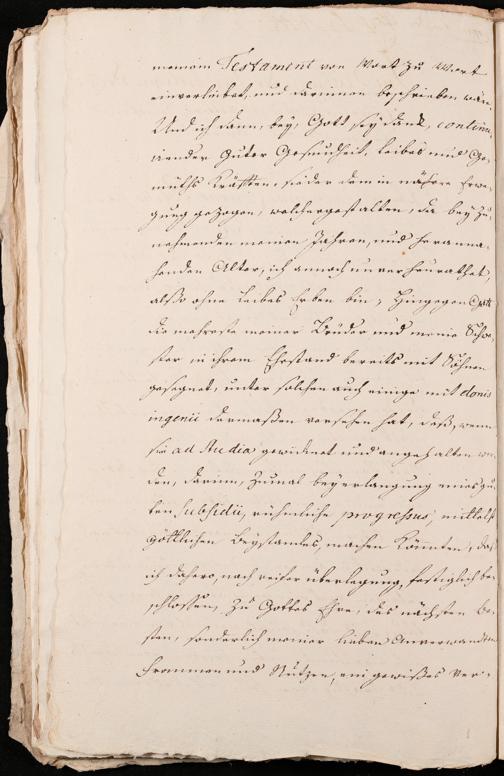 meinem Testament von Wort zu Wort
einverleibet, und darinnen beschrieben wäre.
Und ich dann, bey, Gott sey dank, continui-
render guter Gesundheit, Leibes und Ge-
müths Kräfften, seider dem in nähere Erwe-
gung gezogen, welchergestalten, da bey zu-
nehmenden meinen Jahren, und heranna-
henden Alter, ich annoch unverheurathet,
also ohne Leibes Erben bin, Hingegen Gott
die mehreste meiner Brüder und meine Schwe-
ster in ihrem Ehestand bereits mit Söhnen
gesegnet, unter solchen auch einige mit donis
ingenii dermaßen versehen hat, daß, wenn
sie ad studia gewidmet und angehalten wür-
den, darinn, zumal bey erlangung eines gu-
ten Subsidii, rühmliche progressus, mittelst
göttlichen Beystandes, machen könnten, daß
ich dahero, nach reifer überlegung, festiglich be-
schlossen, zu Gottes Ehre, des nächsten be-
sten, sonderlich meiner lieben Anverwandten
Frommen und Nutzen, ein gewißes Ver-